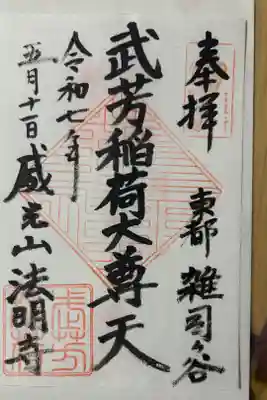 奉拝
東都 雑司ヶ谷
武芳稲荷大尊天
令和七年
五月十一日
威光山法明寺